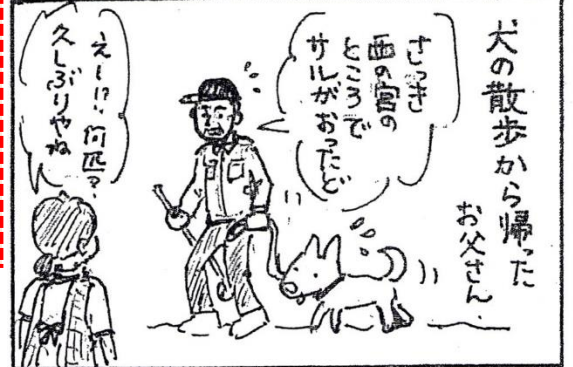 犬の散歩から帰った
お父さん
さっき
西の宮の
ところで
サルがおったど
えー!?何匹?
久しぶりやね